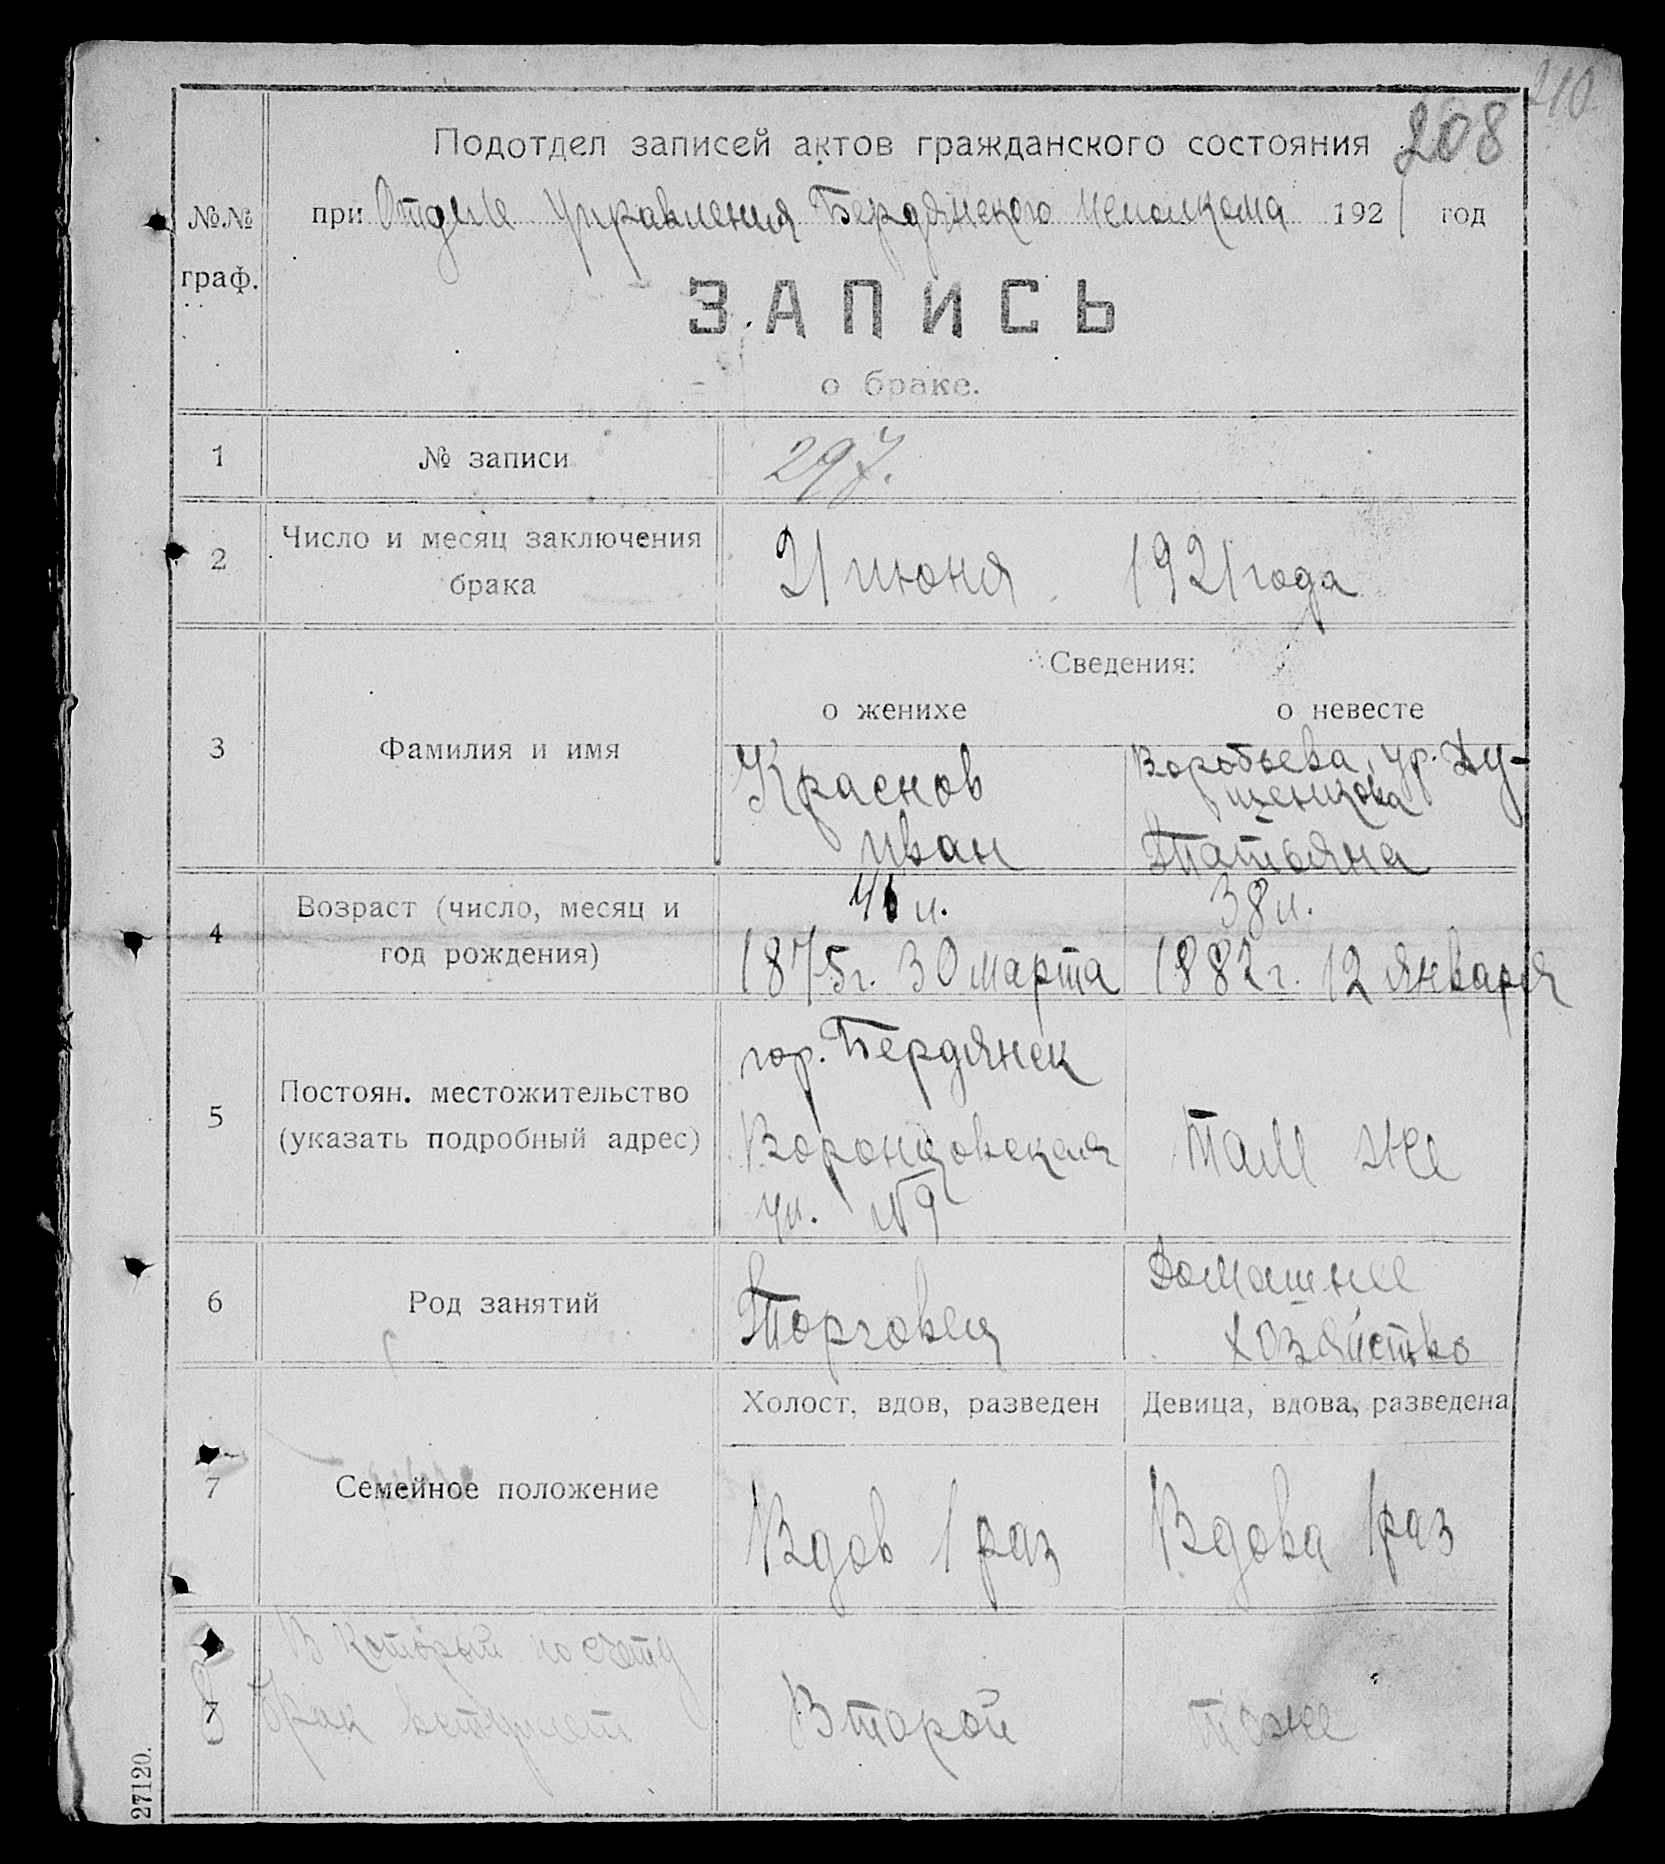 210
208
Подотдел записей актов гражданского состояния
при Отделе Управления Бердянского исполкома 1921 год
№.№
граф.
ЗАПИСЬ
о браке.
1 № записи 297.
2 Число и месяц заключения
брака
21 июня 1921 года
Сведения:
о женихе о невесте
3 Фамилия и имя
Краснов
Иван
Воробьева, ур. Ду-
Татьяна
4 Возраст (число, месяц и
год рождения)
46 л. 38 л.
1875 г. 30 марта 1882 г. 12 января
5 Постоян. местожительство
(указать подробный адрес)
гор. Бердянск
Воронцовская
ул. №9
там же
6 Род занятий
Торговля
Домашнее
хозяйство
7 Семейное положение
Холост, вдов, разведен Девица, вдова, разведена
Вдов 1 раз Вдова 1 раз
8 В который по счету
брак вступает
Второй тоже
27120.